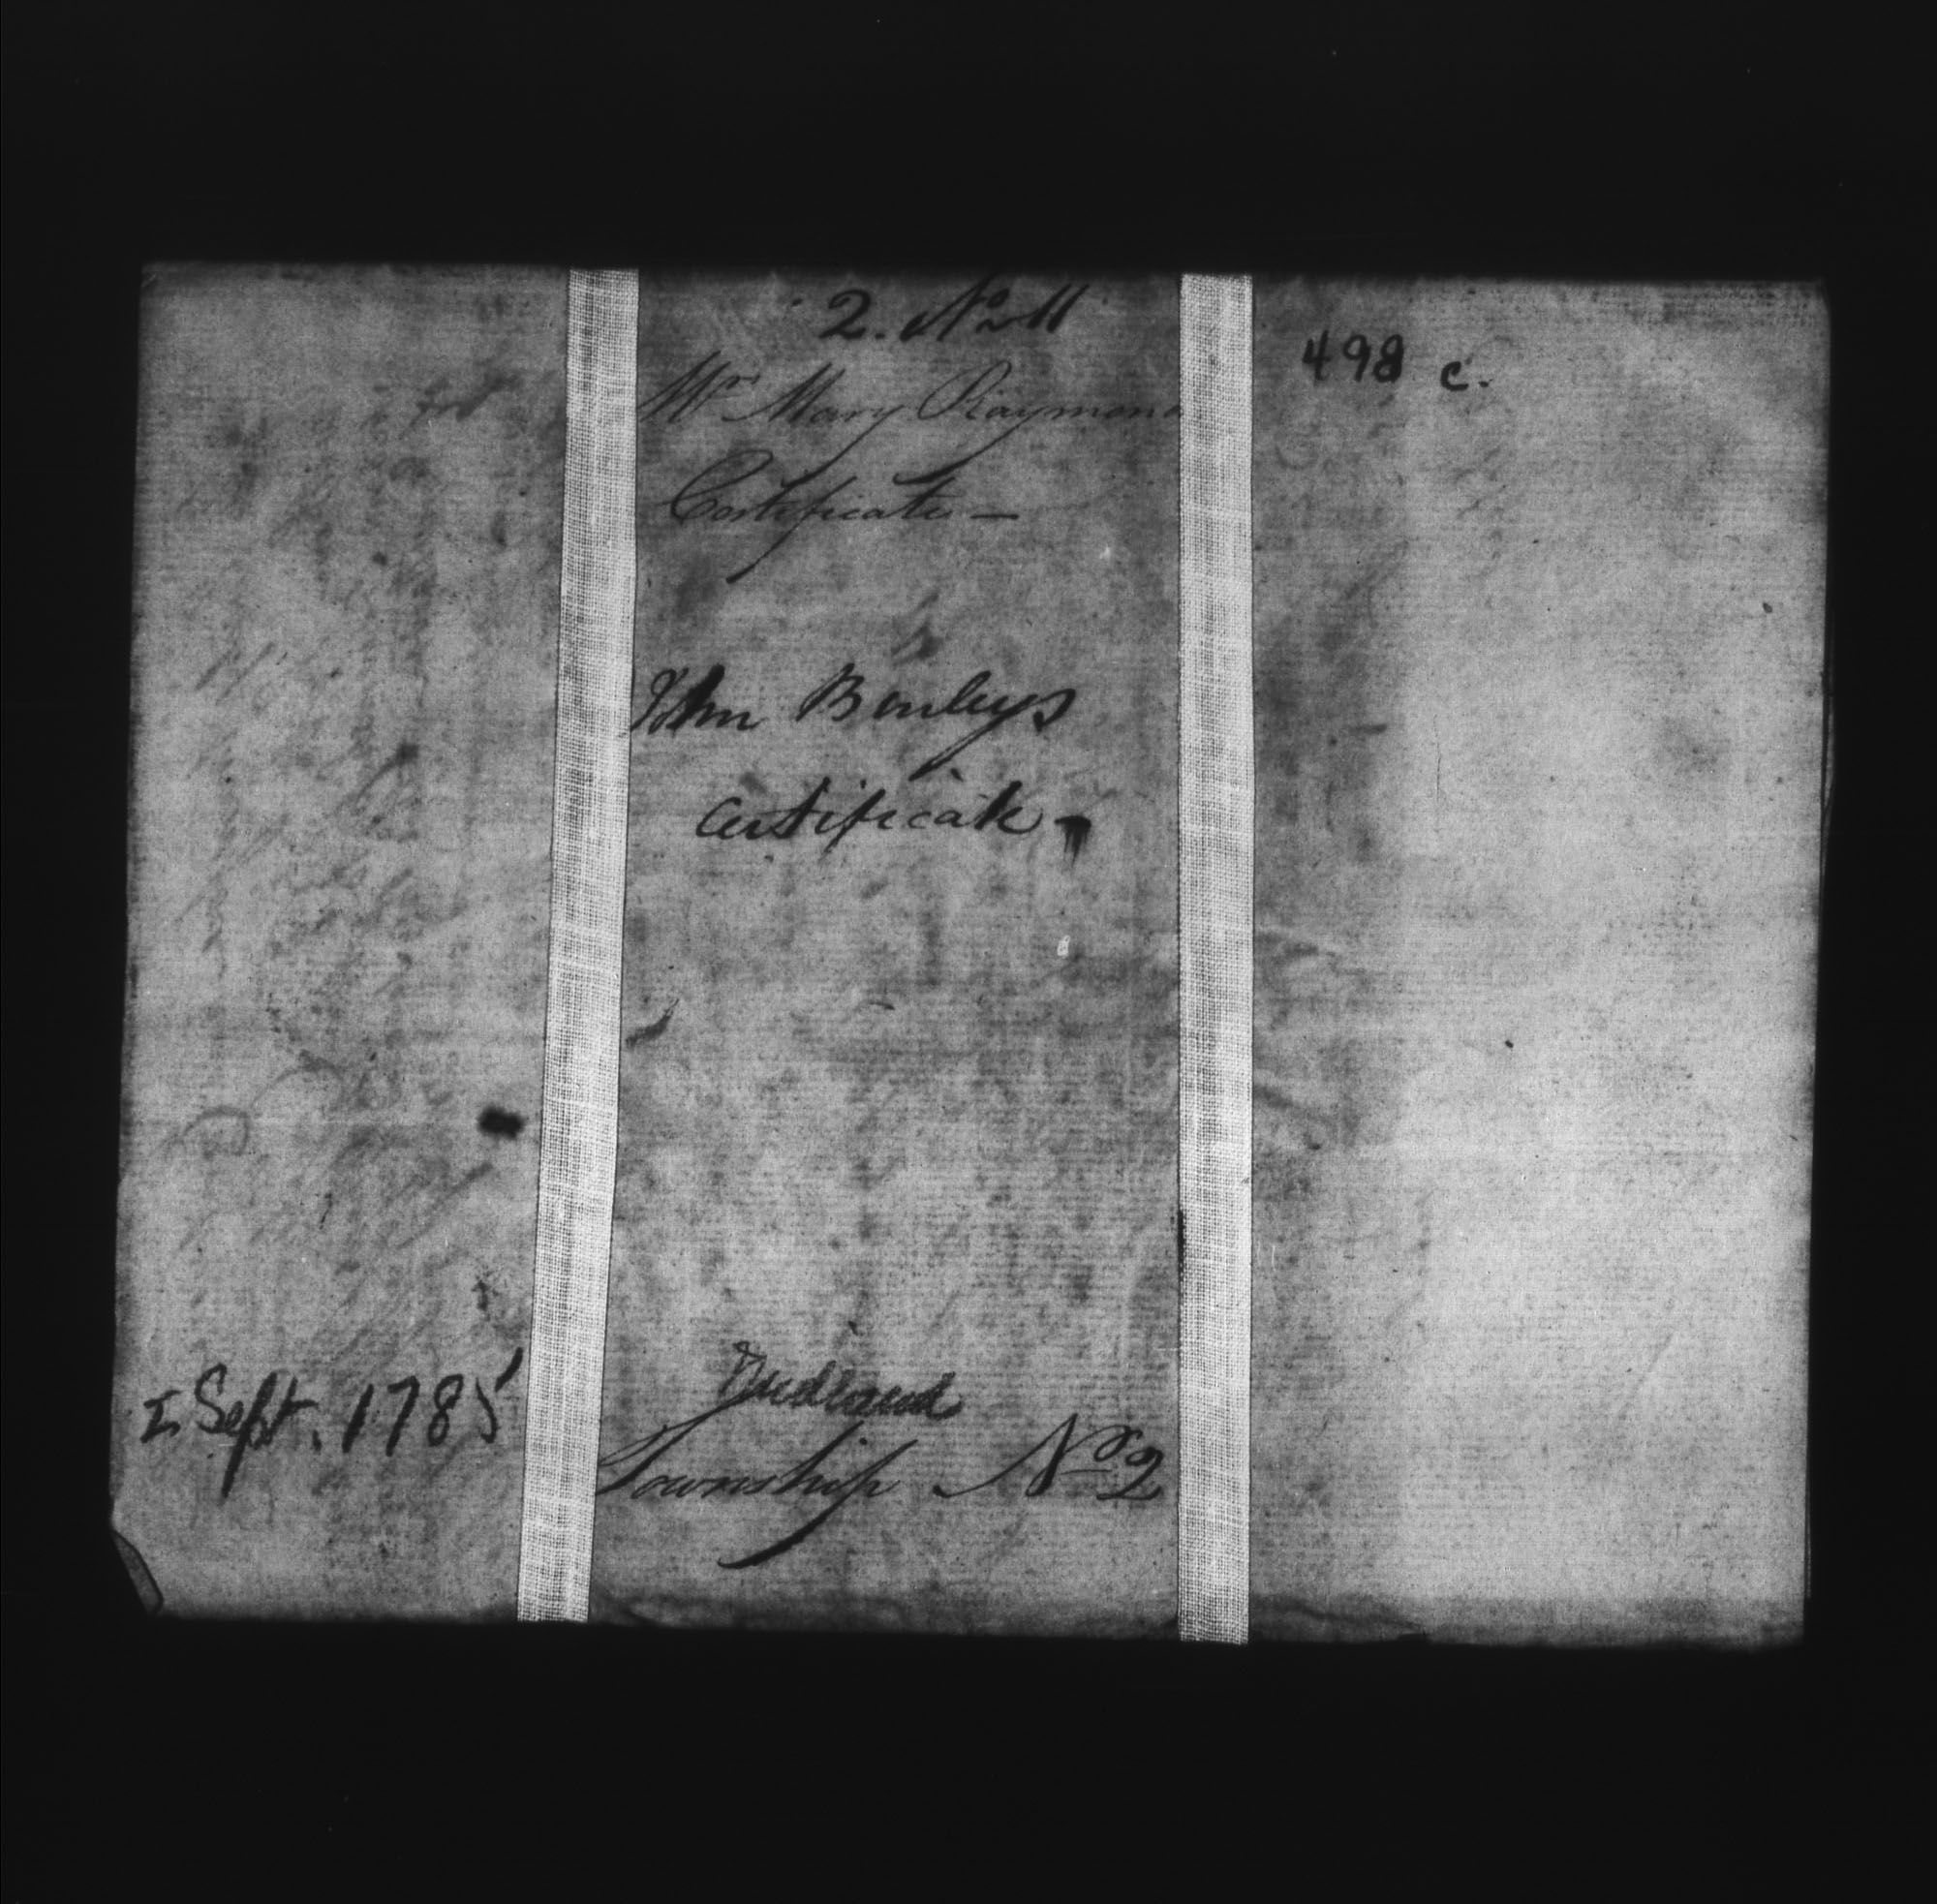 2. No 11
Mrs Mary Raymond
Certificate —
John Benleys
Certificate -
Midland
Township No 2
I Sept. 1785
498 c.